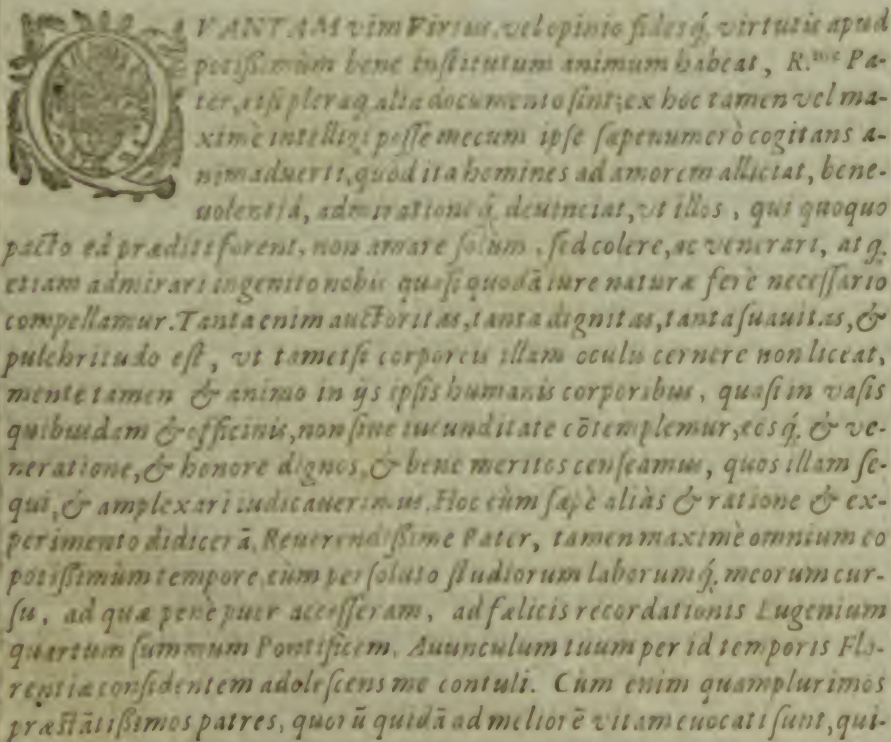 QVANTAM vim Virtus, vel opinio fidesq́, virtutis apud
potißimùm bene institutum animum habeat, R.me Pa-
ter, etsi pleraq, alia documento sint; ex hoc tamen vel ma-
ximè intelligi posse mecum ipse sæpenumerò cogitans a-
nimaduerti, quòd ita homines ad amorem alliciat, bene-
uolentiâ, admirationeq́, deuinciat, vt illos, qui quoquo
pacto eâ præditi forent, non amare solùm, sed colere, ac venerari, atq́,
etiam admirari ingenito nobis quasi quodã iure naturæ ferè necessario
compellamur. Tanta enim auctoritas, tanta dignitas, tanta suauitas, &
pulchritudo est, vt tametsi corporeis illam oculis cernere non liceat,
mente tamen & animo in ijs ipsis humanis corporibus, quasi in vasis
quibusdam & officinis, non sine iucunditate cõtemplemur, eosq́, & ve-
neratione, & honore dignos, & bene meritos censeamus, quos illam se-
qui, & amplexari iudicauerimus. Hoc cùm sæpè aliàs & ratione & ex-
perimento didicerã, Reuerendißime Pater, tamen maximè omnium eo
potißimùm tempore, cùm persoluto studiorum laborumq́, meorum cur-
su, ad quæ penè puer accesseram, ad fælicis recordationis Eugenium
quartum summum Pontificem, Auunculum tuum per id temporis Flo-
rentiæ considentem adolescens me contuli. Cùm enim quamplurimos
præstãtißimos patres, quorũ quidã ad meliorẽ vitam euocati sunt, qui-